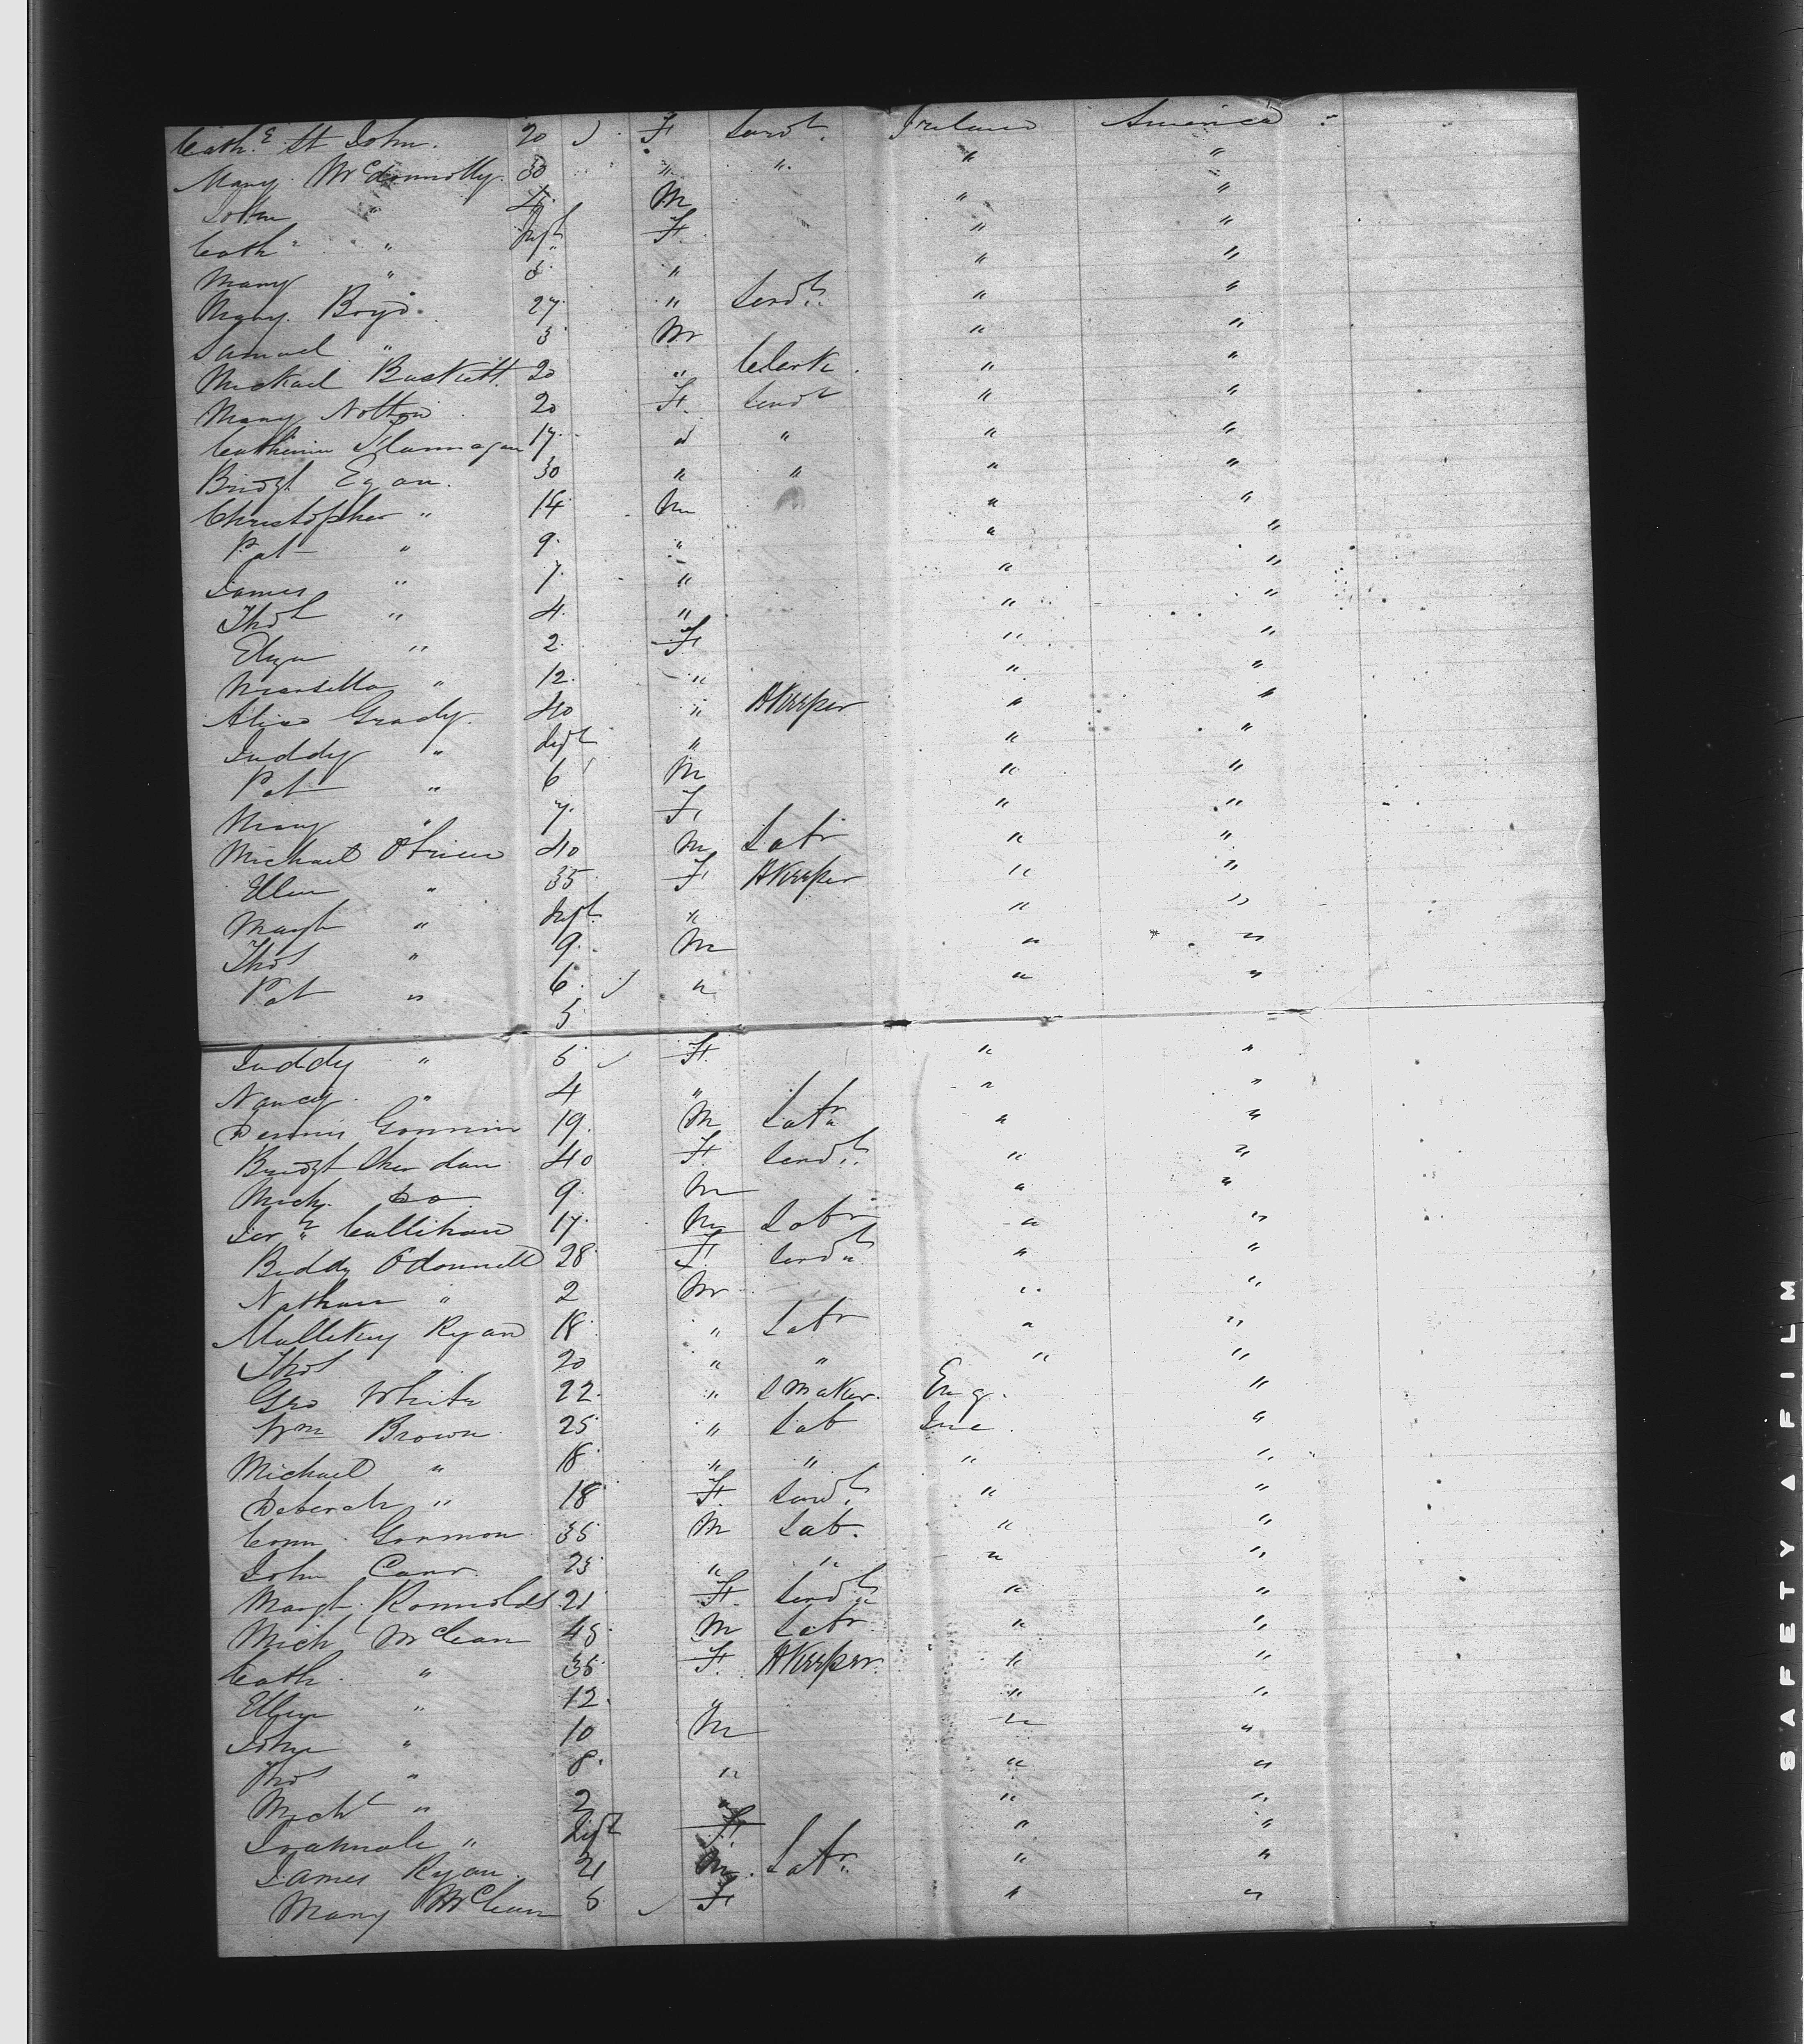 Cath.e St John. 20 F Servt. Ireland America
Mary McDonnolly. 30 " " " "
John " 4 M " "
Cath " Inft F " "
Mary " 3 " " "
Mary Boyd. 27 " Servt. " "
Samuel " 3 M " "
Michael Buskett. 20 " Clerk " "
Mary 20 F. Servt " "
Catherine Flannagan 17 " " " "
Bridgt Egan. 30 " " " "
Christopher " 14 M " "
Pat " 9 " " "
James " 7 " " "
Thos " 4 " " "
Eliza " 2 F " "
Marsella " 12 " " "
Alice Grady. 40 " HKeeper " "
Juddy " Inft " " "
Pat " 6 M " "
Mary " 7 F " "
Michael OBrien 40 M Labr " "
Ellen " 35 F HKeeper " "
Margt " Inft " " "
Thos " 9 M " "
Pat " 6 " " "
5
Juddy " 5 F. " "
Nancy " 4 " " "
Dennis 19 M Labr " "
Bridgt Sheridan 40 F Servt. " "
Mich. Do 9 M " "
Jer" Callihan 17 M Labr " "
Biddy Odonnell 28 F. Servt " "
Nathan " 2 M " "
Ryan 18 " Labr " "
Thos 20 " " " "
Geo White 22 " S Maker. Eng. "
Wm Brown 25 " Lab Ire. "
Michael " 18 " " " "
Deborah " 18 F. Servt. " "
Conn. Gormon 35 M Lab. " "
John Carr. 23 " " " "
Margt. Runnolds 21 F. Servt " "
Mich McLean 45 M Labr " "
Cath. " 35 F. HKeeper. " "
Ellen " 12 " " "
John " 10 M " "
Thos " 8 " " "
Michl " 2 " " "
" Inft F " "
James Ryan 21 M. Labr. " "
Mary McLean 5 F " "
SAFETY A FILM